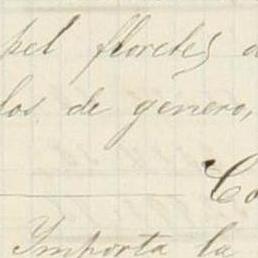 pel floretes d
los de genero,
Co
Importa la